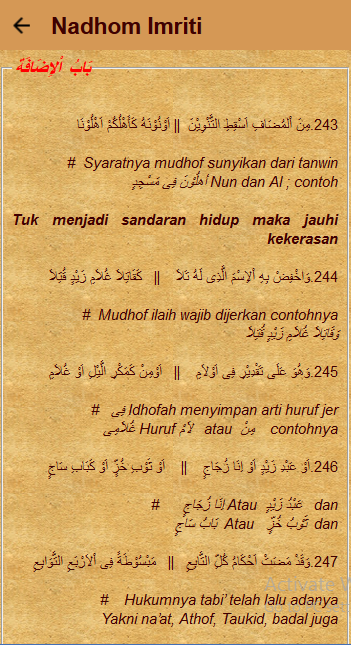 Nadhom Imriti
بَابُ اْلإِضَافَة
243.مِنَ الْمُضَافِ اَسْقِطِ التَّنْوِيْنَ || اَوْنُوْنَهُ كَأَهْلُكُمْ اَهْلُوْنَا
# Syaratnya mudhof sunyikan dari tanwin
Nun dan Al ; contoh أَهْلُوْنَ فِى مَسْجِدٍ
Tuk menjadi sandaran hidup maka jauhi
kekerasan
244.وَاخْفِضْ بِهِ اْلاِسْمَ الَّذِى لَهُ تَلاَ || كَقَاتِلاَ غُلاَمِ زَيْدٍ قُتِلاَ
# Mudhof ilaih wajib dijerkan contohnya
وَقَاتِلاَ غُلاَمِ زَيْدٍ قُتِلاَ
245.وَهُوَ عَلَى تَقْدِيْرِ فِى اَوْلاَمِ || اَوْمِنْ كَمَكْرِ الَّيْلِ اَوْ غُلاَمِ
# Idhofah menyimpan arti huruf jer فِى
Huruf لاَمْ atau مِنْ contohnya غُلاَمِى
246.اَوْ عَبْدِ زَيْدٍ اَوْ اِنَا زُجَاجِ || اَوْ ثَوْبِ خُزٍّ اَوْ كَبَابِ سَاجِ
# عَبْدُ زَيْدٍ Atau اِنَا زُجَاجٍ dan
ثَوْبُ خُزٍّ Atau بَابُ سَاجٍ dan
247.وَقَدْ مَضَتْ اَحْكَامُ كُلِّ التَّابِعِ || مَبْسُوْطَةً فِى اْلاَرْبَعِ التَّوَابِعِ
# Hukumnya tabi' telah lalu adanya
Yakni na'at, Athof, Taukid, badal juga